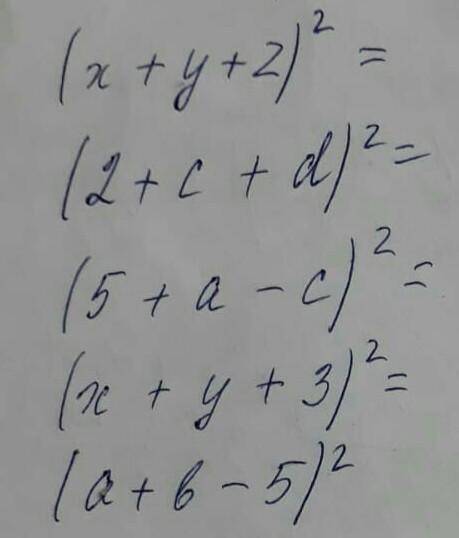 (x + y + 2)² =
(2 + c + d)² =
(5 + a - c)² =
(x + y + 3)² =
(a + b - 5)²